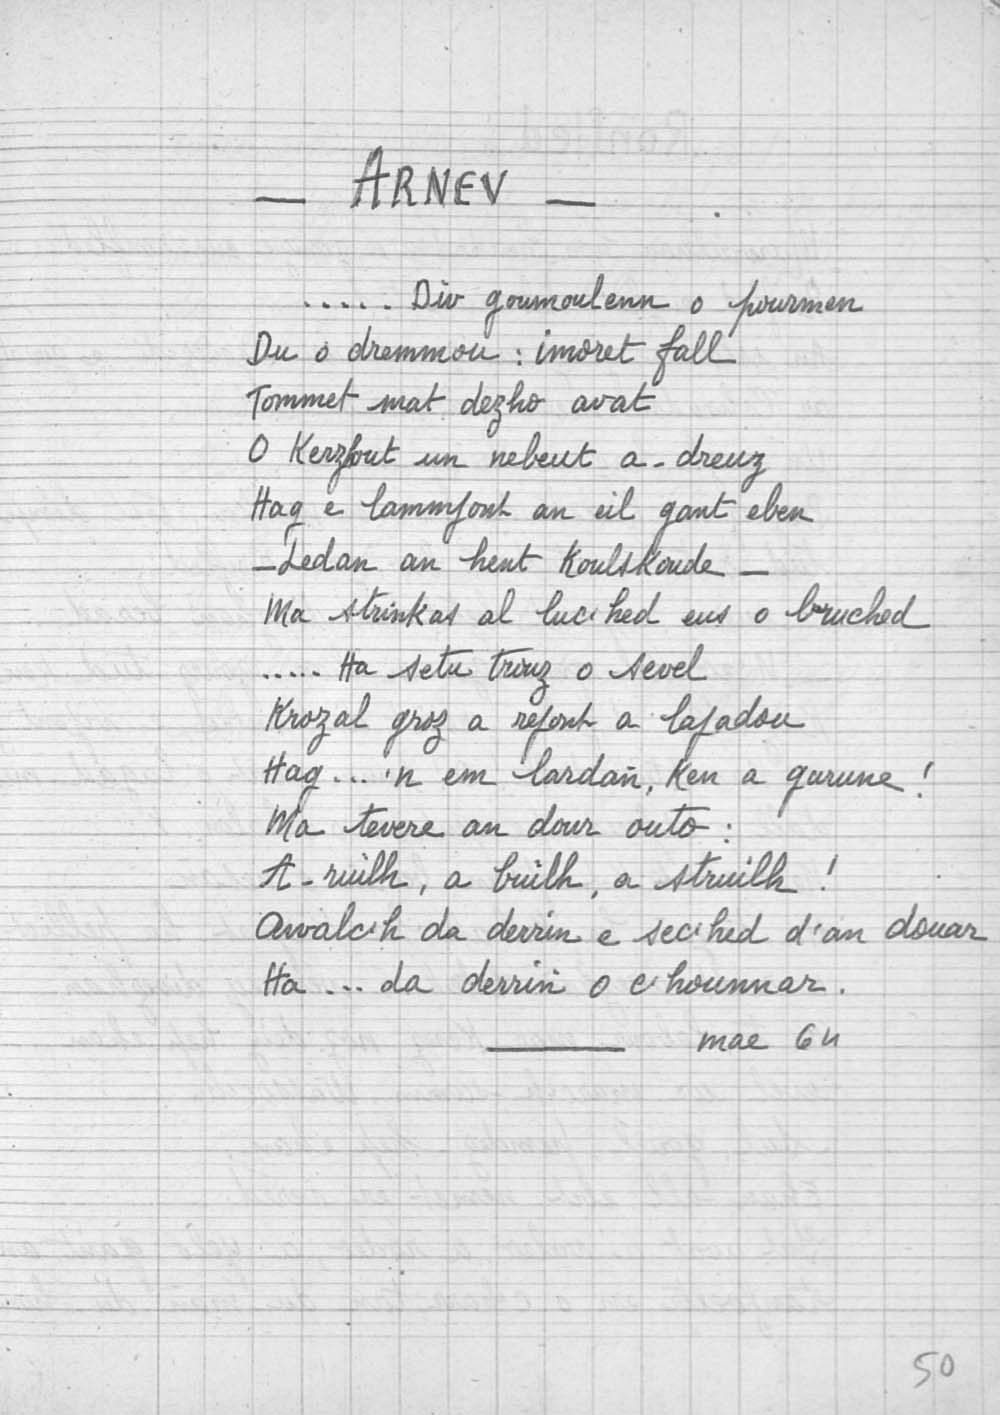 — ARNEV —
..... Div goumoulenn o pourmen
Du o dremmou : imoret fall
Tommet mat dezho avat
O Kerzhout un nebeut a-dreuz
Hag e lammjont an eil gant eben
—Ledan an hent Koulskoude—
Ma strinkas al luc'hed eus o bruched
..... Ha setu trouz o sevel
Krozal groz a rejont a lajadou
Hag ... 'n em lardañ, Ken a gurune !
Ma tevere an dour outo :
A-ruilh, a builh, a struilh !
Awalc'h da derriñ e sec'hed d'an douar
Ha ... da derriñ o c'hounnar.
mae 64
50